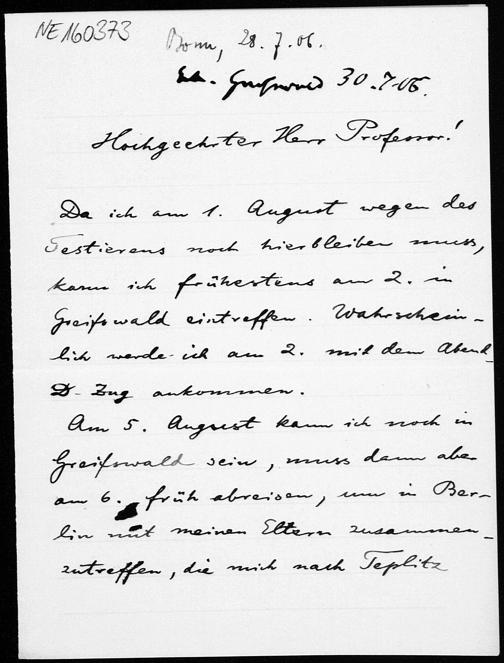 NE160373
Bonn, 28.7.06.
Erh. Greifswald 30.7.06.
Hochgeehrter Herr Professor!
Da ich am 1. August wegen des
Testierens noch hierbleiben muss,
kann ich frühestens am 2. in
Greifswald eintreffen. Wahrschein-
lich werde ich am 2. mit dem Abend-
D-Zug ankommen.
Am 5. August kann ich noch in
Greifswald sein, muss dann aber
am 6. früh abreisen, um in Ber-
lin mit meinen Eltern zusammen-
zutreffen, die mich nach Teplitz